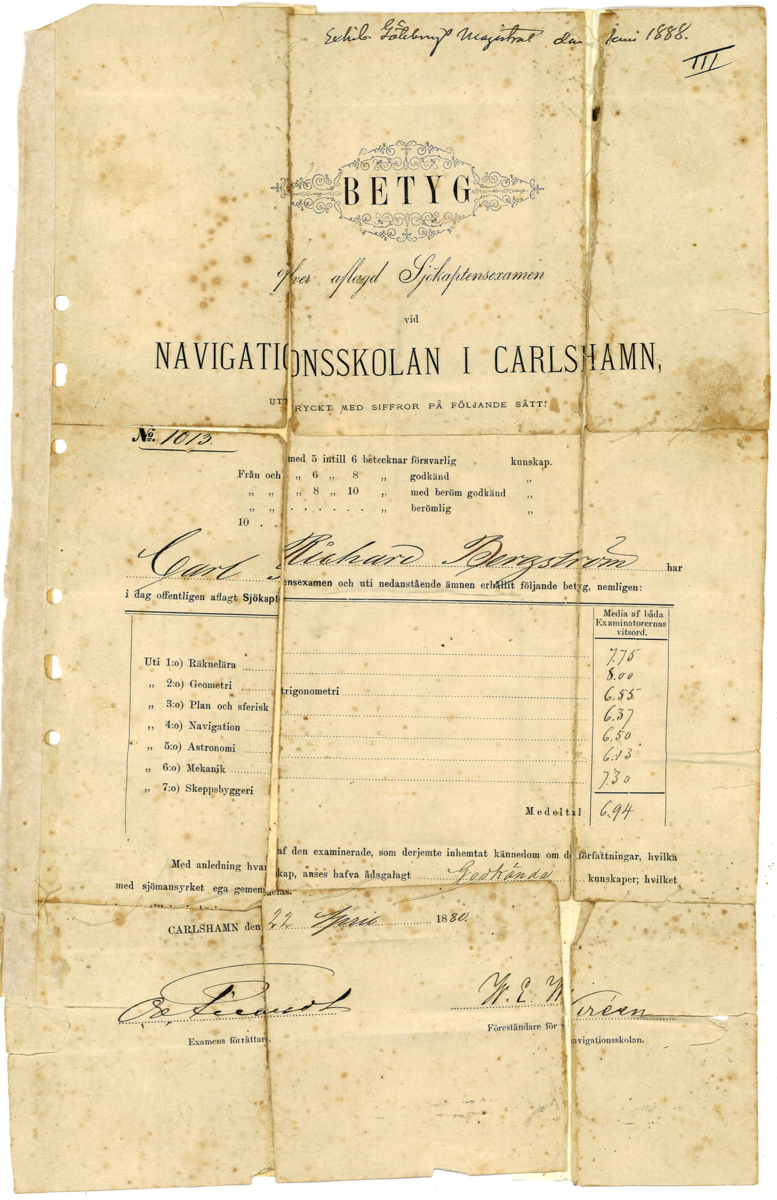 Exhib. Göteborgs Magistrat den Juni 1888.
III
BETYG
öfver aflagd Sjökaptensexamen
vid
NAVIGATIONSSKOLAN I CARLSHAMN,
UTTRYCKT MED SIFFROR PÅ FÖLJANDE SÄTT:
No. 1013.
Från och med 5 intill 6 betecknar försvarlig kunskap.
„ „ „ 6 „ 8 „ godkänd „
„ „ „ 8 „ 10 „ med beröm godkänd „
10 . . . . . . . . „ berömlig „
Carl Richard Bergström har
i dag offentligen aflagt Sjökaptensexamen och uti nedanstående ämnen erhållit följande betyg, nemligen:
Media af båda
Examinatorernas
vitsord.
Uti 1:o) Räknelära 7.75
„ 2:o) Geometri 8.00
„ 3:o) Plan och sferisk trigonometri 6.55
„ 4:o) Navigation 6.37
„ 5:o) Astronomi 6.50
„ 6:o) Mekanik 6.13
„ 7:o) Skeppsbyggeri 7.30
Medeltal 6.94
Med anledning hvaraf den examinerade, som derjemte inhemtat kännedom om de författningar, hvilka
med sjömansyrket ega gemenskap, anses hafva ådagalagt Godkända kunskaper; hvilket
CARLSHAMN den 22 April 1880.
W. E. Wiréen
Examens förrättare
Föreståndare för navigationsskolan.